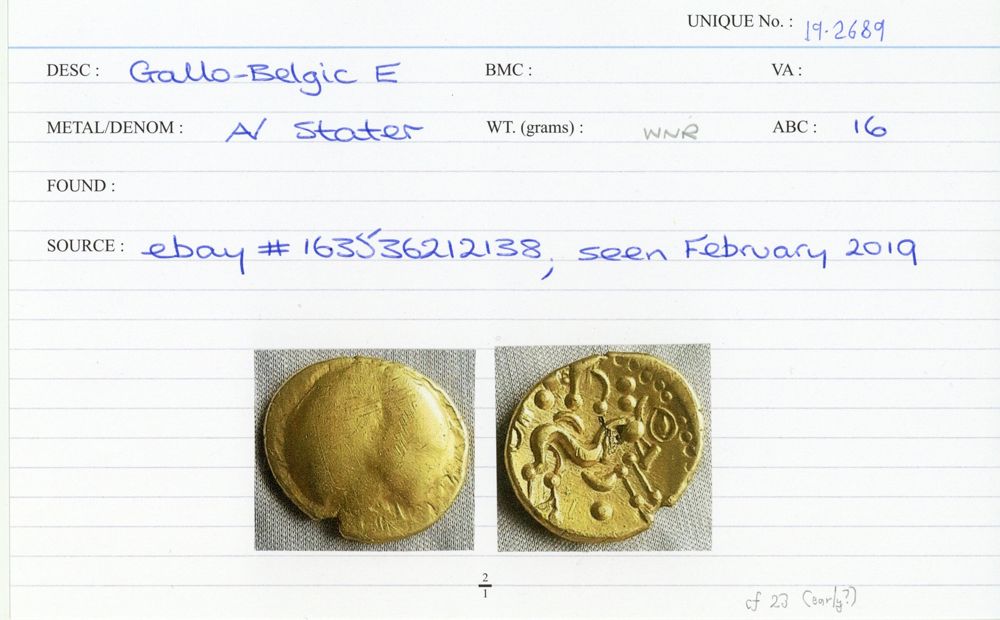 UNIQUE No. : 19.2689
DESC : Gallo-Belgic E BMC : VA :
METAL/DENOM : A/ Stater WT. (grams) : WNR ABC : 16
FOUND :
SOURCE : ebay # 163536212138, seen February 2019
2
1
cf 23 (early?)